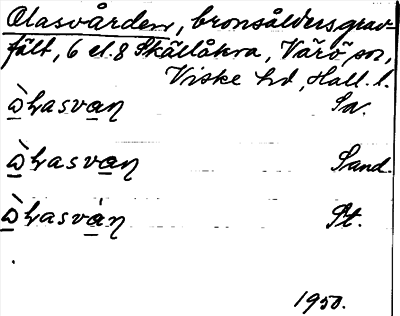 Olasvården, bronsåldersgrav-
fält, 6 el. 8 Skällåkra, Värö sn,
Viske hd, Hall. l.
ὼLasvaꞑ Sa.
ὼLasvaꞑ Sand.
ὼLasváꞑ St.
1950.